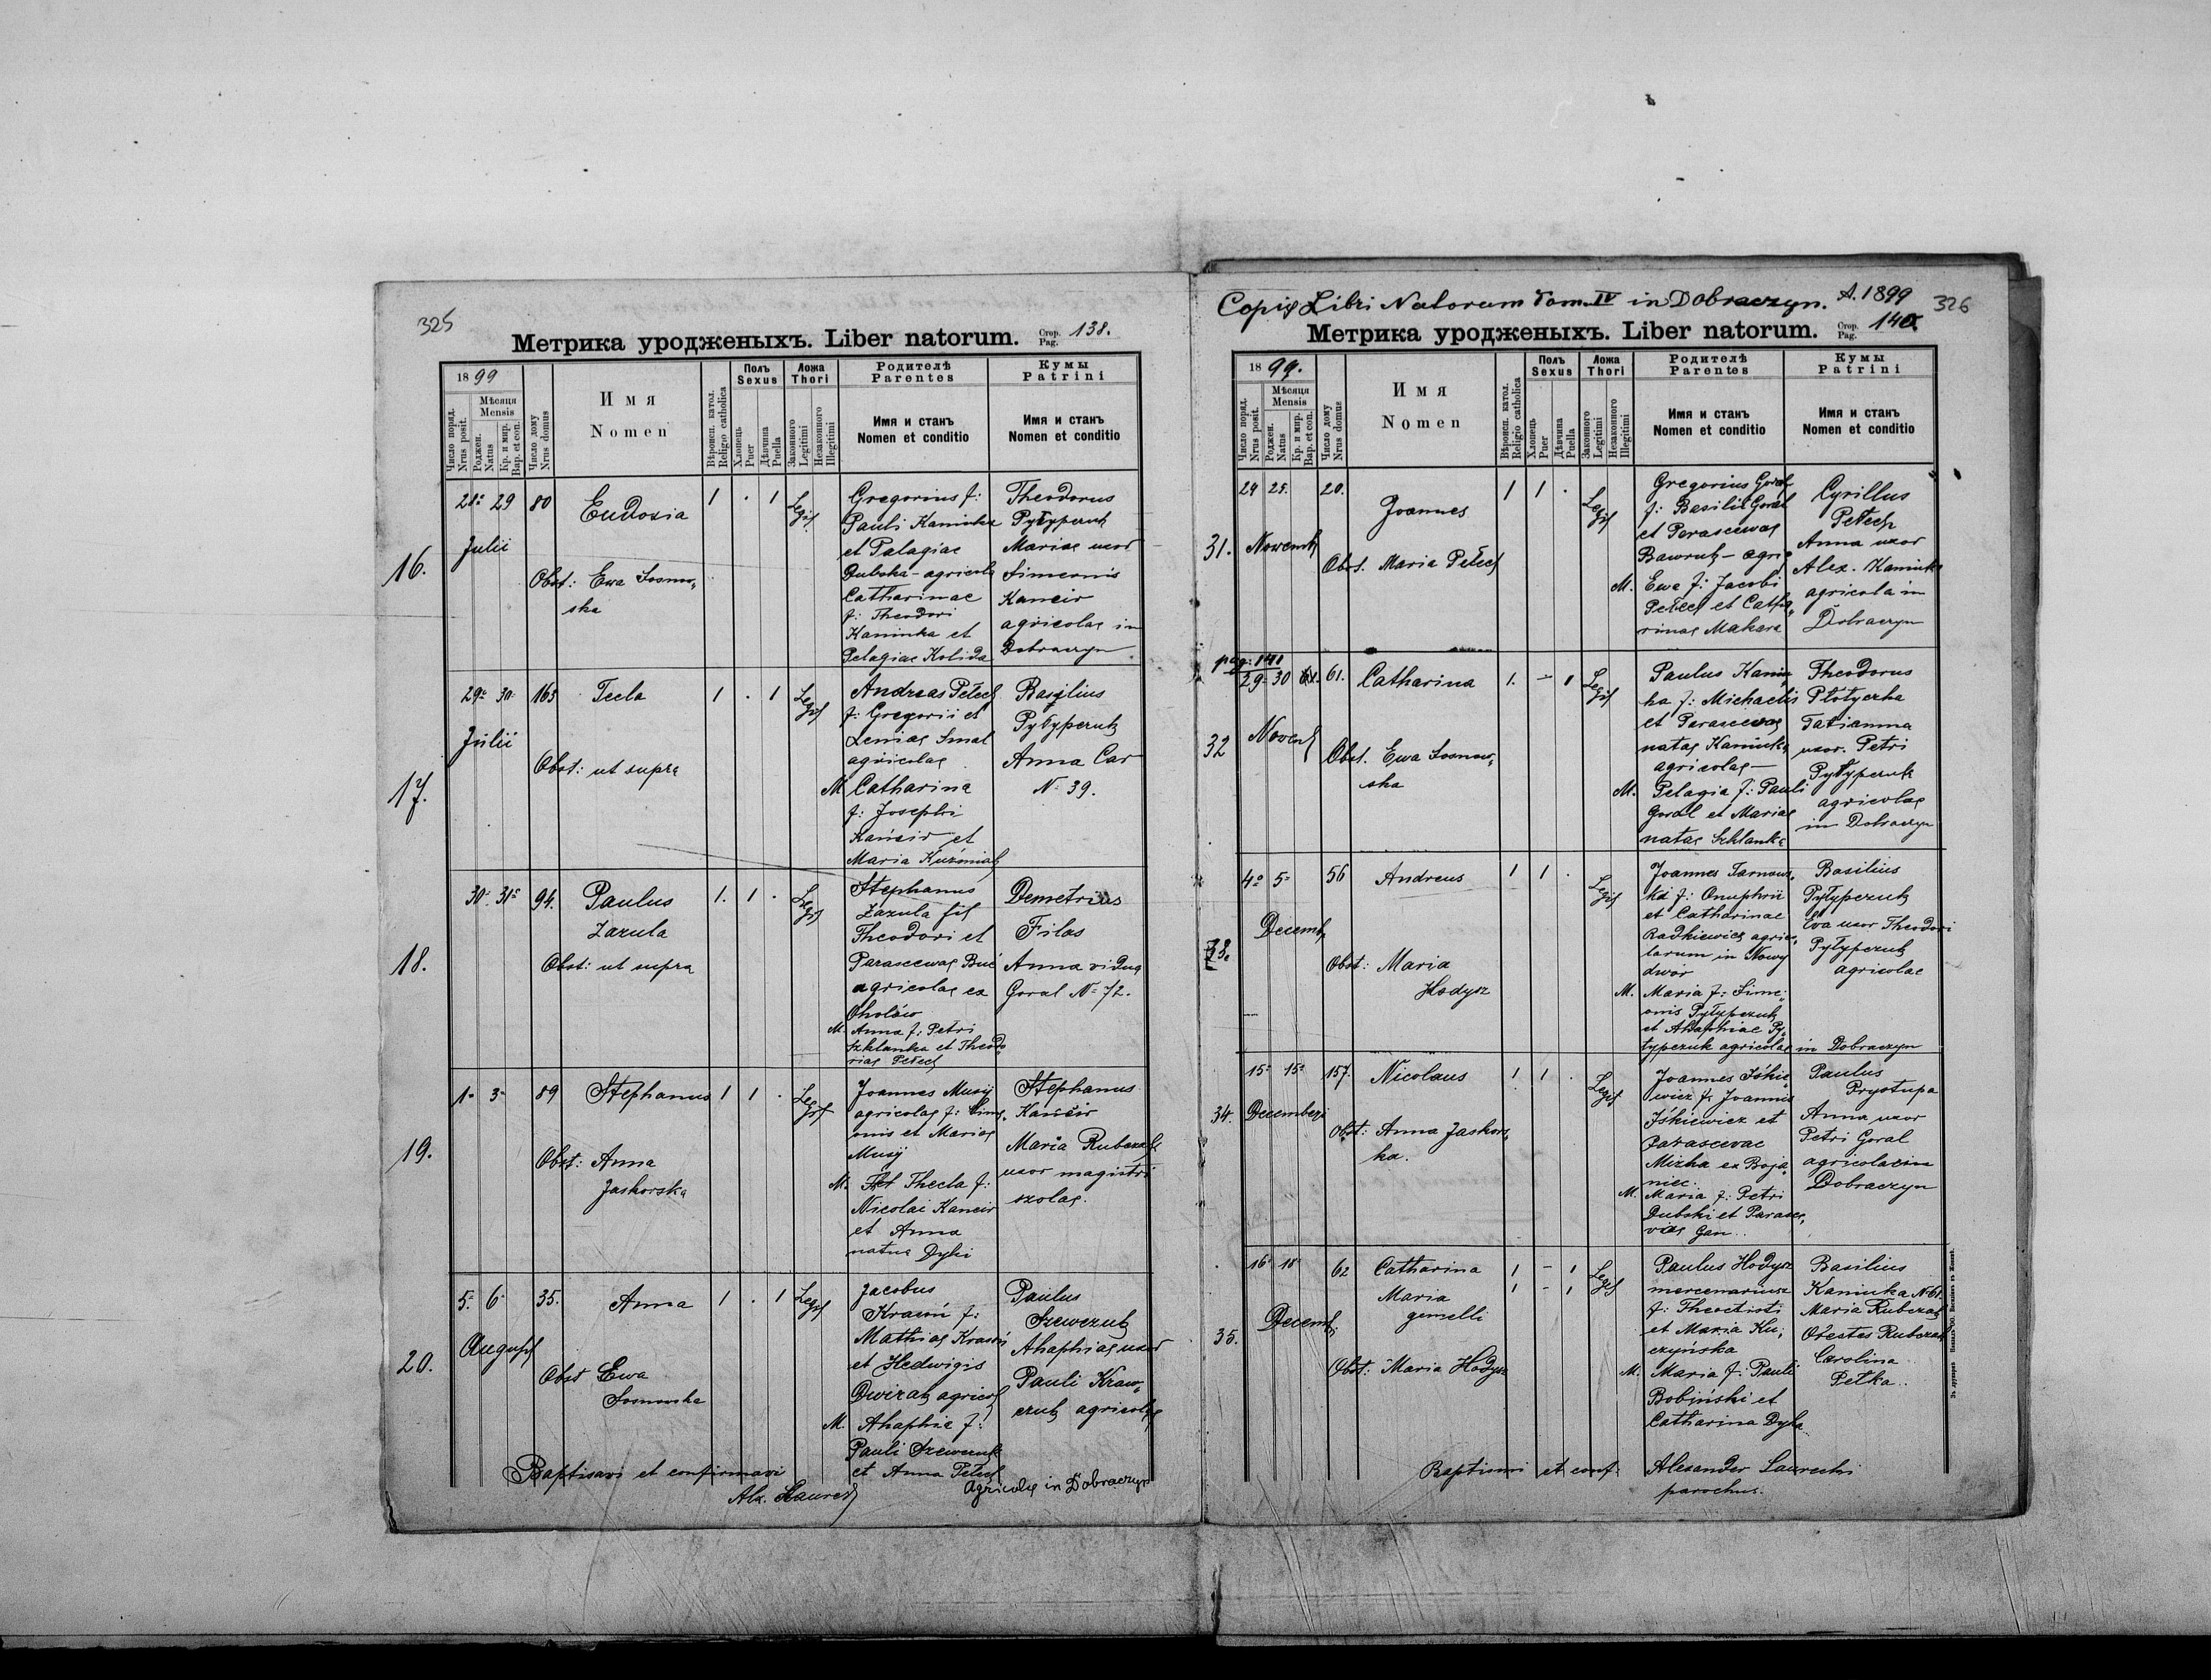 325
Метрика уродженыхъ. Liber natorum. Стор. Pag. 138.
1899
Число поряд. Nrus posit.
Мѣсяця Mensis
Роджен. Natus
Кр. и мир. Bap. et con.
Число дому Nrus domus
Имя
Nomen
Вѣроисп. катол. Religio catholica
Полъ Sexus
Хлопець Puer
Дѣвчина Puella
Ложа Thori
Законного Legitimi
Незаконного Illegitimi
Родителѣ
Parentes
Имя и станъ
Nomen et conditio
Кумы
Patrini
Имя и станъ
Nomen et conditio
16.
28. 29 80 Eudoxia 1 . 1 Legit
Julii
Obst: Ewa Sosnow„
ska
Gregorius f:
Pauli Kaminka
et Palagiae
Duboka - agricola
Catharinae
f: Theodori
Kaminka et
Pelagiae Kolida
Theodorus
Pyłypczuk
Mariae uxor
Simeonis
Kancir
agricolae in
Dobraczyn
17.
29. 30. 163 Tecla 1 . 1 Legit
Julii
Obst: ut supra
Andreas Petech
f: Gregorii et
Xeniae Smal
agricolae
M. Catharina
f: Josephi
Kańcir et
Maria Kuźniak
Basylius
Pyłypczuk
Anna Car
N. 39.
18.
30. 31. 94. Paulus 1. 1 . Legit
Zazula
Obst: ut supra
Stephanus
Zazula fil
Theodori et
Parascewae Buć
agricolae ex
Ohołów
M. Anna f: Petri
Szklanka et Theodo„
riae Petech
Demetrius
Filas
Anna vidua
Goral N. 72.
19.
1. 3. 89 Stephanus 1 1 . Legit
Obst: Anna
Jaskorska
Joannes Musij
agricolae f: Sime„
onis et Mariae
Musij
M. Thecla f:
Nicolai Kancir
et Anna
natus Dyki
Stephanus
Kańcir
Maria Rubczak
uxor magistri
szolae.
20.
5. 6. 35. Anna 1 . 1 Legit
August
Obst Ewa
Sosnowska
Jacobus
Krasuń f:
Mathiae Krasuń
et Hedwigis
Dwirak agricol
M. Ahaphie f:
Pauli Szewczuk
et Anna Petech
Paulus
Szewczuk
Ahaphiae uxor
Pauli Kraw„
czuk agricolae
Agricolae in Dobraczyn
Baptisavi et confirmavi
Alex. Laurech
Copia Libri Natorum Tom. IV in Dobraczyn. A. 1899
326
Метрика уродженыхъ. Liber natorum. Стор. Pag. 140.
1899.
Число поряд. Nrus posit.
Мѣсяця Mensis
Роджен. Natus
Кр. и мир. Bap. et con.
Число дому Nrus domus
Имя
Nomen
Вѣроисп. катол. Religio catholica
Полъ Sexus
Хлопець Puer
Дѣвчина Puella
Ложа Thori
Законного Legitimi
Незаконного Illegitimi
Родителѣ
Parentes
Имя и станъ
Nomen et conditio
Кумы
Patrini
Имя и станъ
Nomen et conditio
31.
24 25. 20. Joannes 1 1 . Legit
Nowemb
Obst. Maria Petech
Gregorius Goral
f: Basilii Goral
et Parascewae
Bawruk - agri„
M. Ewa f: Jacobi
Petech et Catha„
rinae Makara
Cyrillus
Petech
Anna uxor
Alex. Kaminka
agricola in
Dobraczyn
pag: 141
32
29. 30 61. Catharina 1. - 1 Legit
Novem
Obst. Ewa Sosnow„
ska
Paulus Kamin
ka f: Michaelis
et Parascewae
natae Kaminka
agricolae -
M. Pelagia f: Pauli
Goral et Mariae
natae Szklanka
Theodorus
Płotyczka
Tatianna
uxor. Petri
Pyłypczuk
agricolae
in Dobraczyn
33.
4. 5. 56 Andreus 1 1 . Legit
Decemb
Obst: Maria
Hodysz
Joannes Tarnows„
ki f: Onuphrii
et Catharinae
Radkiewicz agrico„
larum in Nowy
dwor
M. Maria f: Sime„
onis Pyłypczuk
et Ahaphiae Py„
łypczuk agricolae in Dobraczyn
Basilius
Pyłypczuk
Eva uxor Theodori
Pyłypczuk
agricolae
34.
15. 15. 157. Nicolaus 1 1 . Legit
Decembri
Obst: Anna Jaskors„
ka.
Joannes Iśkie„
wicz f: Joannis
Iśkiewicz et
Parascevae
Mizka ex Boja„
niec.
M. Maria f: Petri
Duboki et Parasce„
viae Gan..
Paulus
Prystupa
Anna uxor
Petri Goral
agricolae in
Dobraczyn
35.
16. 18 62 Catharina 1 - 1 Legit
Maria 1 - 1
gemelli
Decemb.
Obst: Maria Hodysz
Paulus Hodysz
mercenariusz
f: Theoctisti
et Maria Ku„
czyńska
M. Maria f: Pauli
Bobiński et
Catharina Dyka..
Basilius
Kaminka N 61.
Maria Rubczak
Orestes Rubczak
Carolina
Petka..
Baptisavi et conf: Alexander Laurecki
parochus.